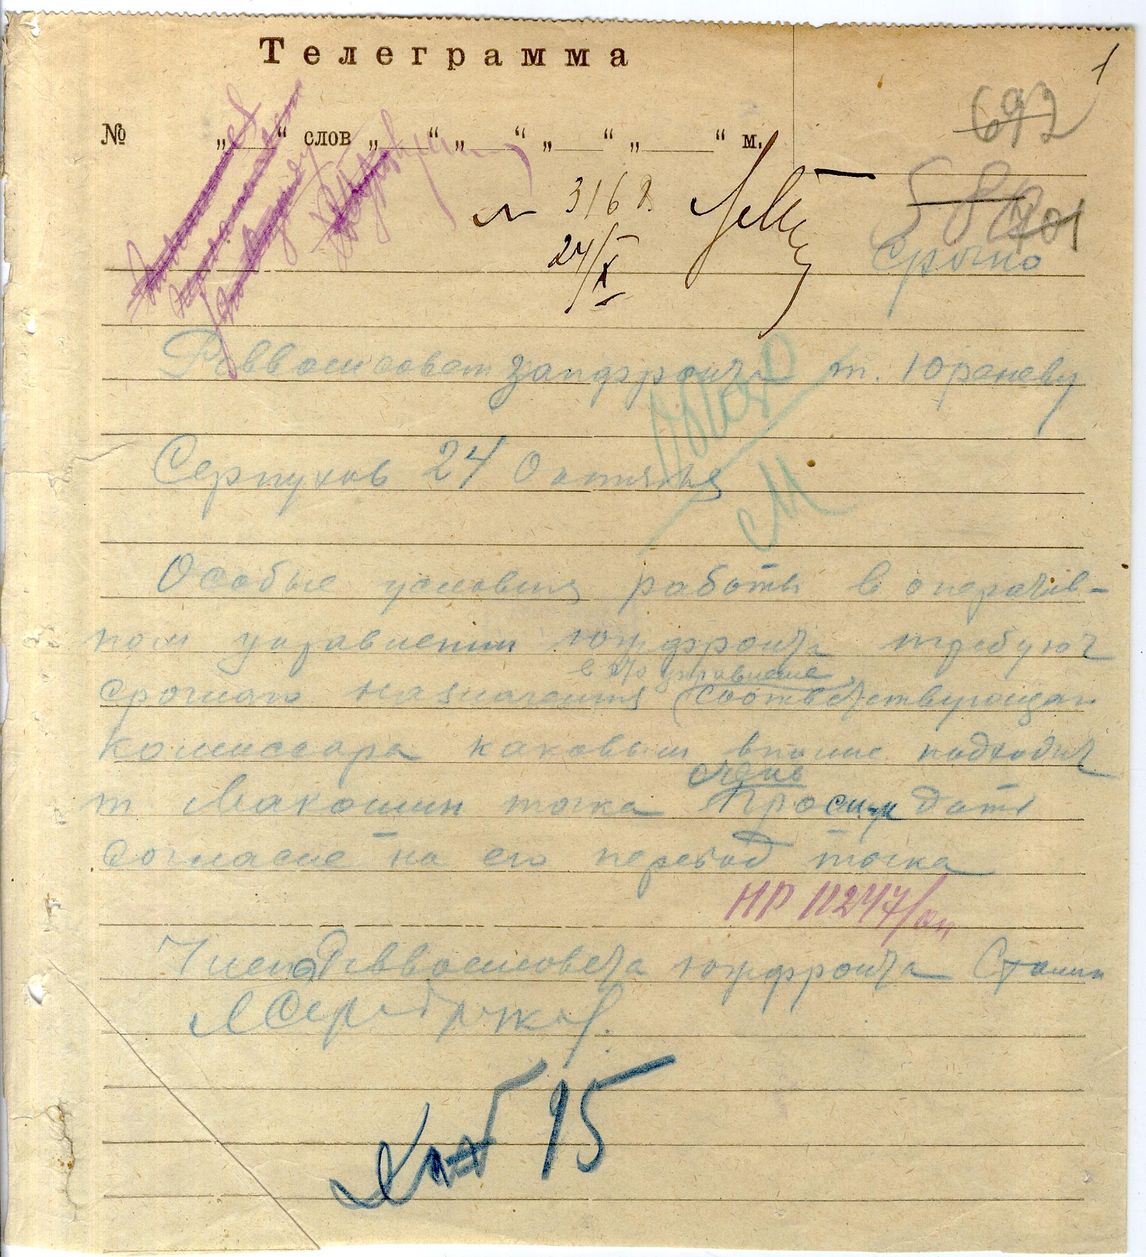 Телеграмма
1
692
№ „ “ слов „ “ „ “ „ “ „ “ м.
582
701
№ 3162
24/X
Срочно
Реввоенсовет Запфронта т. Юреневу
Серпухов 24 Октября
Особые условия работы в оператив-
ном управлении южфронта требуют
в это управление
срочного назначения соответствующего
комиссара каковым вполне подходит
очень
т. Макошин точка Просим дать
согласие на его перевод точка
НР 11247/оп
Член Реввоенсовета южфронта Сталин
Л Серебряков.
95